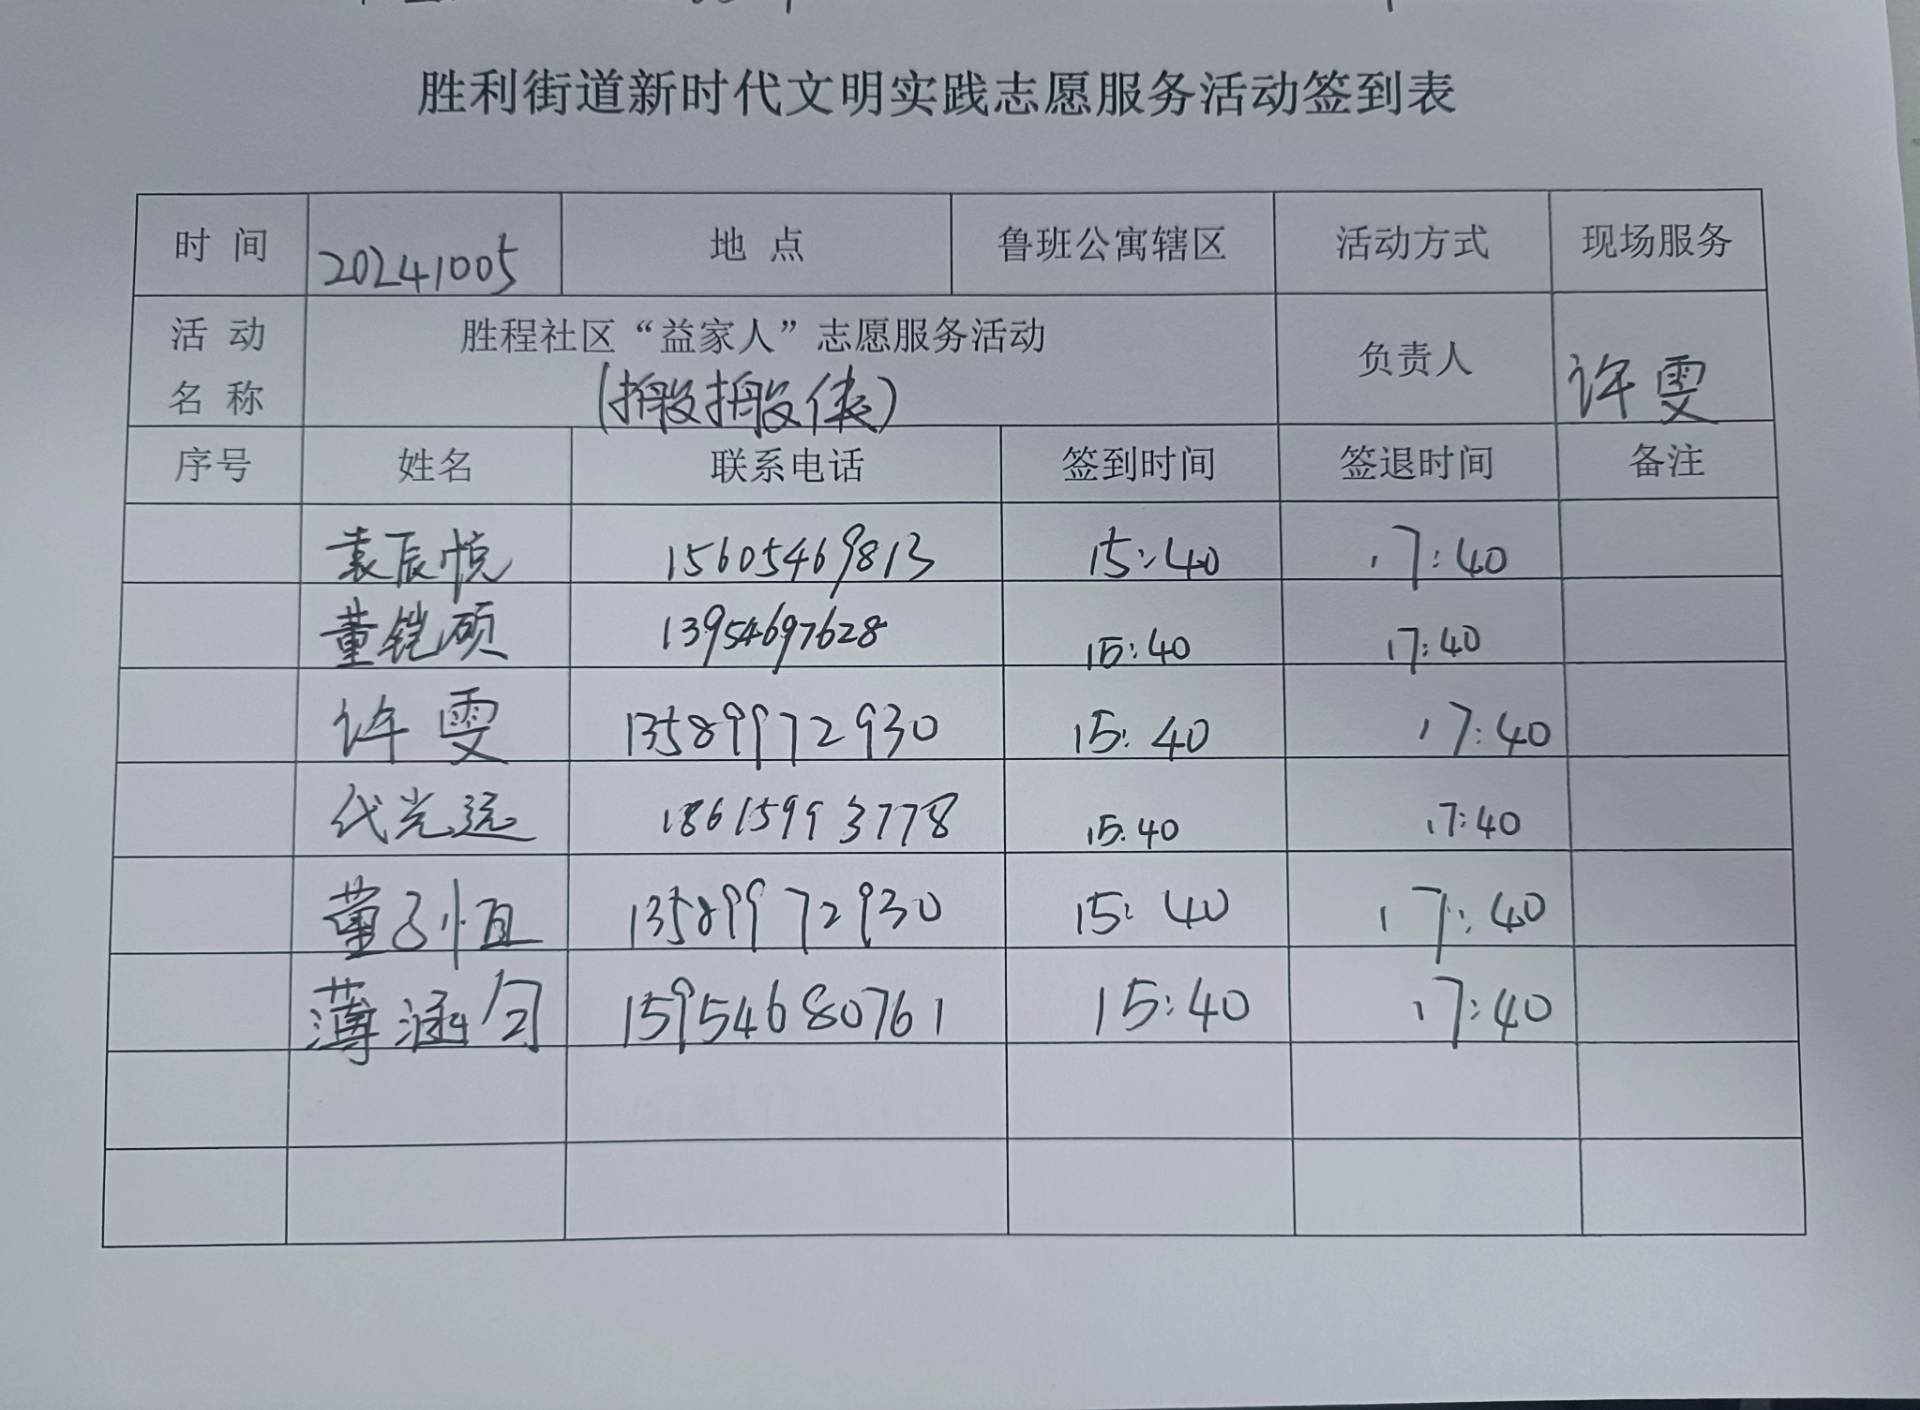 胜利街道新时代文明实践志愿服务活动签到表
时 间 20241005 地 点 鲁班公寓辖区 活动方式 现场服务
活 动 名 称 胜程社区“益家人”志愿服务活动 负责人 许雯
(搬搬侠)
序号 姓名 联系电话 签到时间 签退时间 备注
袁辰悦 15605469813 15:40 17:40
董铠硕 13954697628 15:40 17:40
许雯 13589972930 15:40 17:40
代光远 18615993778 15:40 17:40
董子恒 13589972930 15:40 17:40
薄涵匀 15954680761 15:40 17:40